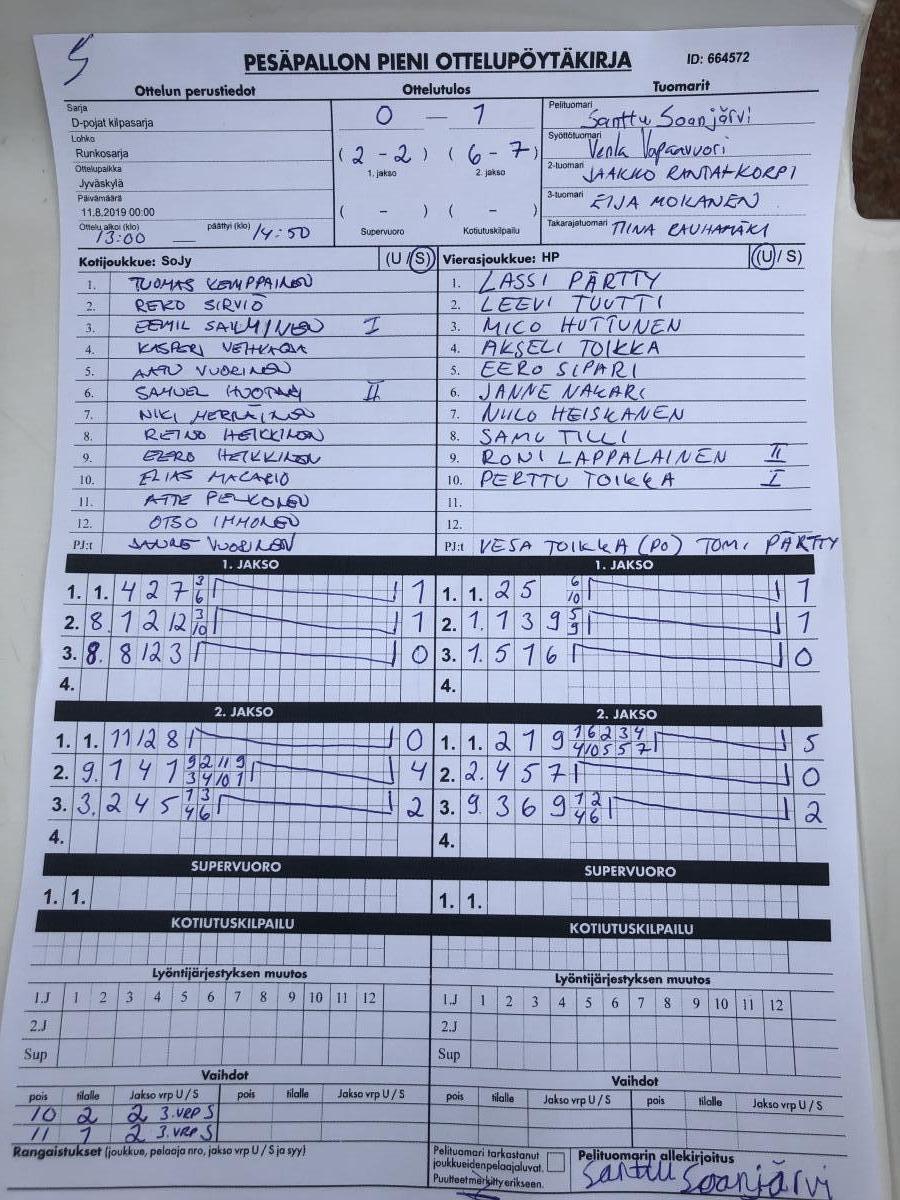 PESÄPALLON PIENI OTTELUPÖYTÄKIRJA ID: 664572
Ottelun perustiedot Ottelutulos Tuomarit
Sarja
D-pojat kilpasarja
Lohko
Runkosarja
Ottelupaikka
Jyväskylä
Päivämäärä
11.8.2019 00:00
Ottelu alkoi (klo) 13:00 päättyi (klo) 14:50
0 — 1
(2 - 2) (6 - 7)
1. jakso 2. jakso
( - ) ( - )
Supervuoro Kotiutuskilpailu
Pelituomari Santtu Soanjärvi
Syöttötuomari Venla Vapaavuori
2-tuomari JAAKKO RANTA-KORPI
3-tuomari EIJA MOKANEN
Takarajatuomari TIINA RAUHAMÄKI
Kotijoukkue: SoJy (U / S) Vierasjoukkue: HP (U / S)
1. TUOMAS KEMPPAINEN 1. LASSI PÄRTTY
2. REKO SIRVIÖ 2. LEEVI TUUTTI
3. EEMIL SALMINEN I 3. MICO HUTTUNEN
4. KASPERI 4. AKSELI TOIKKA
5. AATU VUORINEN 5. EERO SIPARI
6. SAMUEL HUOTARI II 6. JANNE NAKARI
7. NIKI 7. NIILO HEISKANEN
8. REINO HEIKKINEN 8. SAMU TILLI
9. EERO HEIKKINEN 9. RONI LAPPALAINEN II
10. ELIAS MACARIO 10. PERTTU TOIKKA I
11. ATTE PELKONEN 11.
12. OTSO IMMONEN 12.
PJ:t JANNE VUORINEN PJ:t VESA TOIKKA (PO) TOMI PÄRTTY
1. JAKSO 1. JAKSO
1. 1. 4 2 7 3 6 1 1. 1. 2 5 6 10 1
2. 8. 1 2 12 3 10 1 2. 1. 1 3 9 5 9 1
3. 8. 8 12 3 0 3. 1. 5 7 6 0
4. 4.
2. JAKSO 2. JAKSO
1. 1. 11 12 8 0 1. 1. 2 7 9 1 6 2 3 4 4 10 5 5 7 5
2. 9. 1 4 1 9 2 11 9 3 4 10 1 4 2. 2. 4 5 7 0
3. 3. 2 4 5 1 3 4 6 2 3. 9. 3 6 9 1 2 4 6 2
4. 4.
SUPERVUORO SUPERVUORO
1. 1. 1. 1.
KOTIUTUSKILPAILU KOTIUTUSKILPAILU
Lyöntijärjestyksen muutos Lyöntijärjestyksen muutos
1.J 1 2 3 4 5 6 7 8 9 10 11 12 1.J 1 2 3 4 5 6 7 8 9 10 11 12
2.J 2.J
Sup Sup
Vaihdot Vaihdot
pois tilalle Jakso vrp U / S pois tilalle Jakso vrp U / S pois tilalle Jakso vrp U / S pois tilalle Jakso vrp U / S
10 2 2 3.VRP S
11 1 2 3.VRP S
Rangaistukset (joukkue, pelaaja nro, jakso vrp U / S ja syy)
Pelituomari tarkastanut
joukkueidenpelaajaluvat.
Puutteet merkitty erikseen.
Pelituomarin allekirjoitus
Santtu Soanjärvi